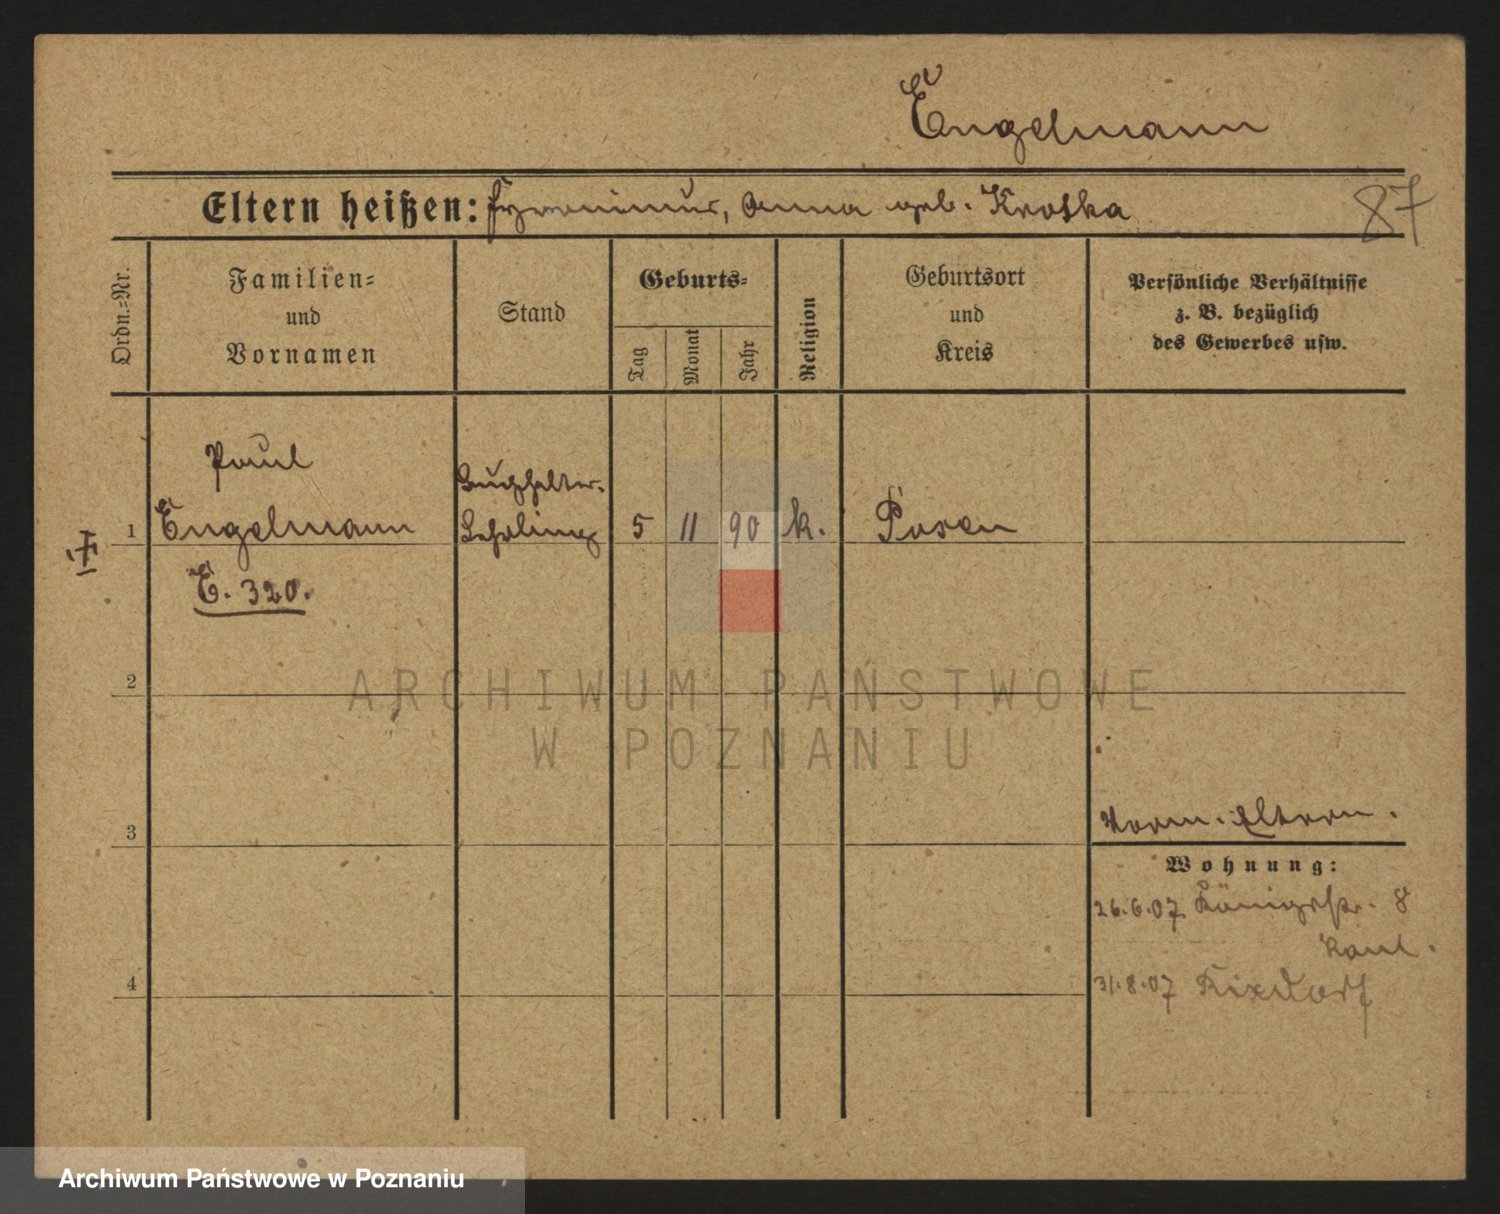 Engelmann
Eltern heißen: Hyronimus, Anna geb. Kroska
87
Ordn.-Nr.
Familien-
und
Vornamen
Stand
Geburts-
Tag
Monat
Jahr
Religion
Geburtsort
und
Kreis
Persönliche Verhältnisse
z. B. bezüglich
des Gewerbes usw.
Paul
Buchhalter-
1 Engelmann Lehrling 5 11 90 k. Posen
E. 320.
2
3
Vorm. Eltern.
Wohnung:
26.6.07. Königstr. 8
Paul.
4
31.8.07 Rixdorf
ARCHIWUM PAŃSTWOWE
W POZNANIU
Archiwum Państwowe w Poznaniu